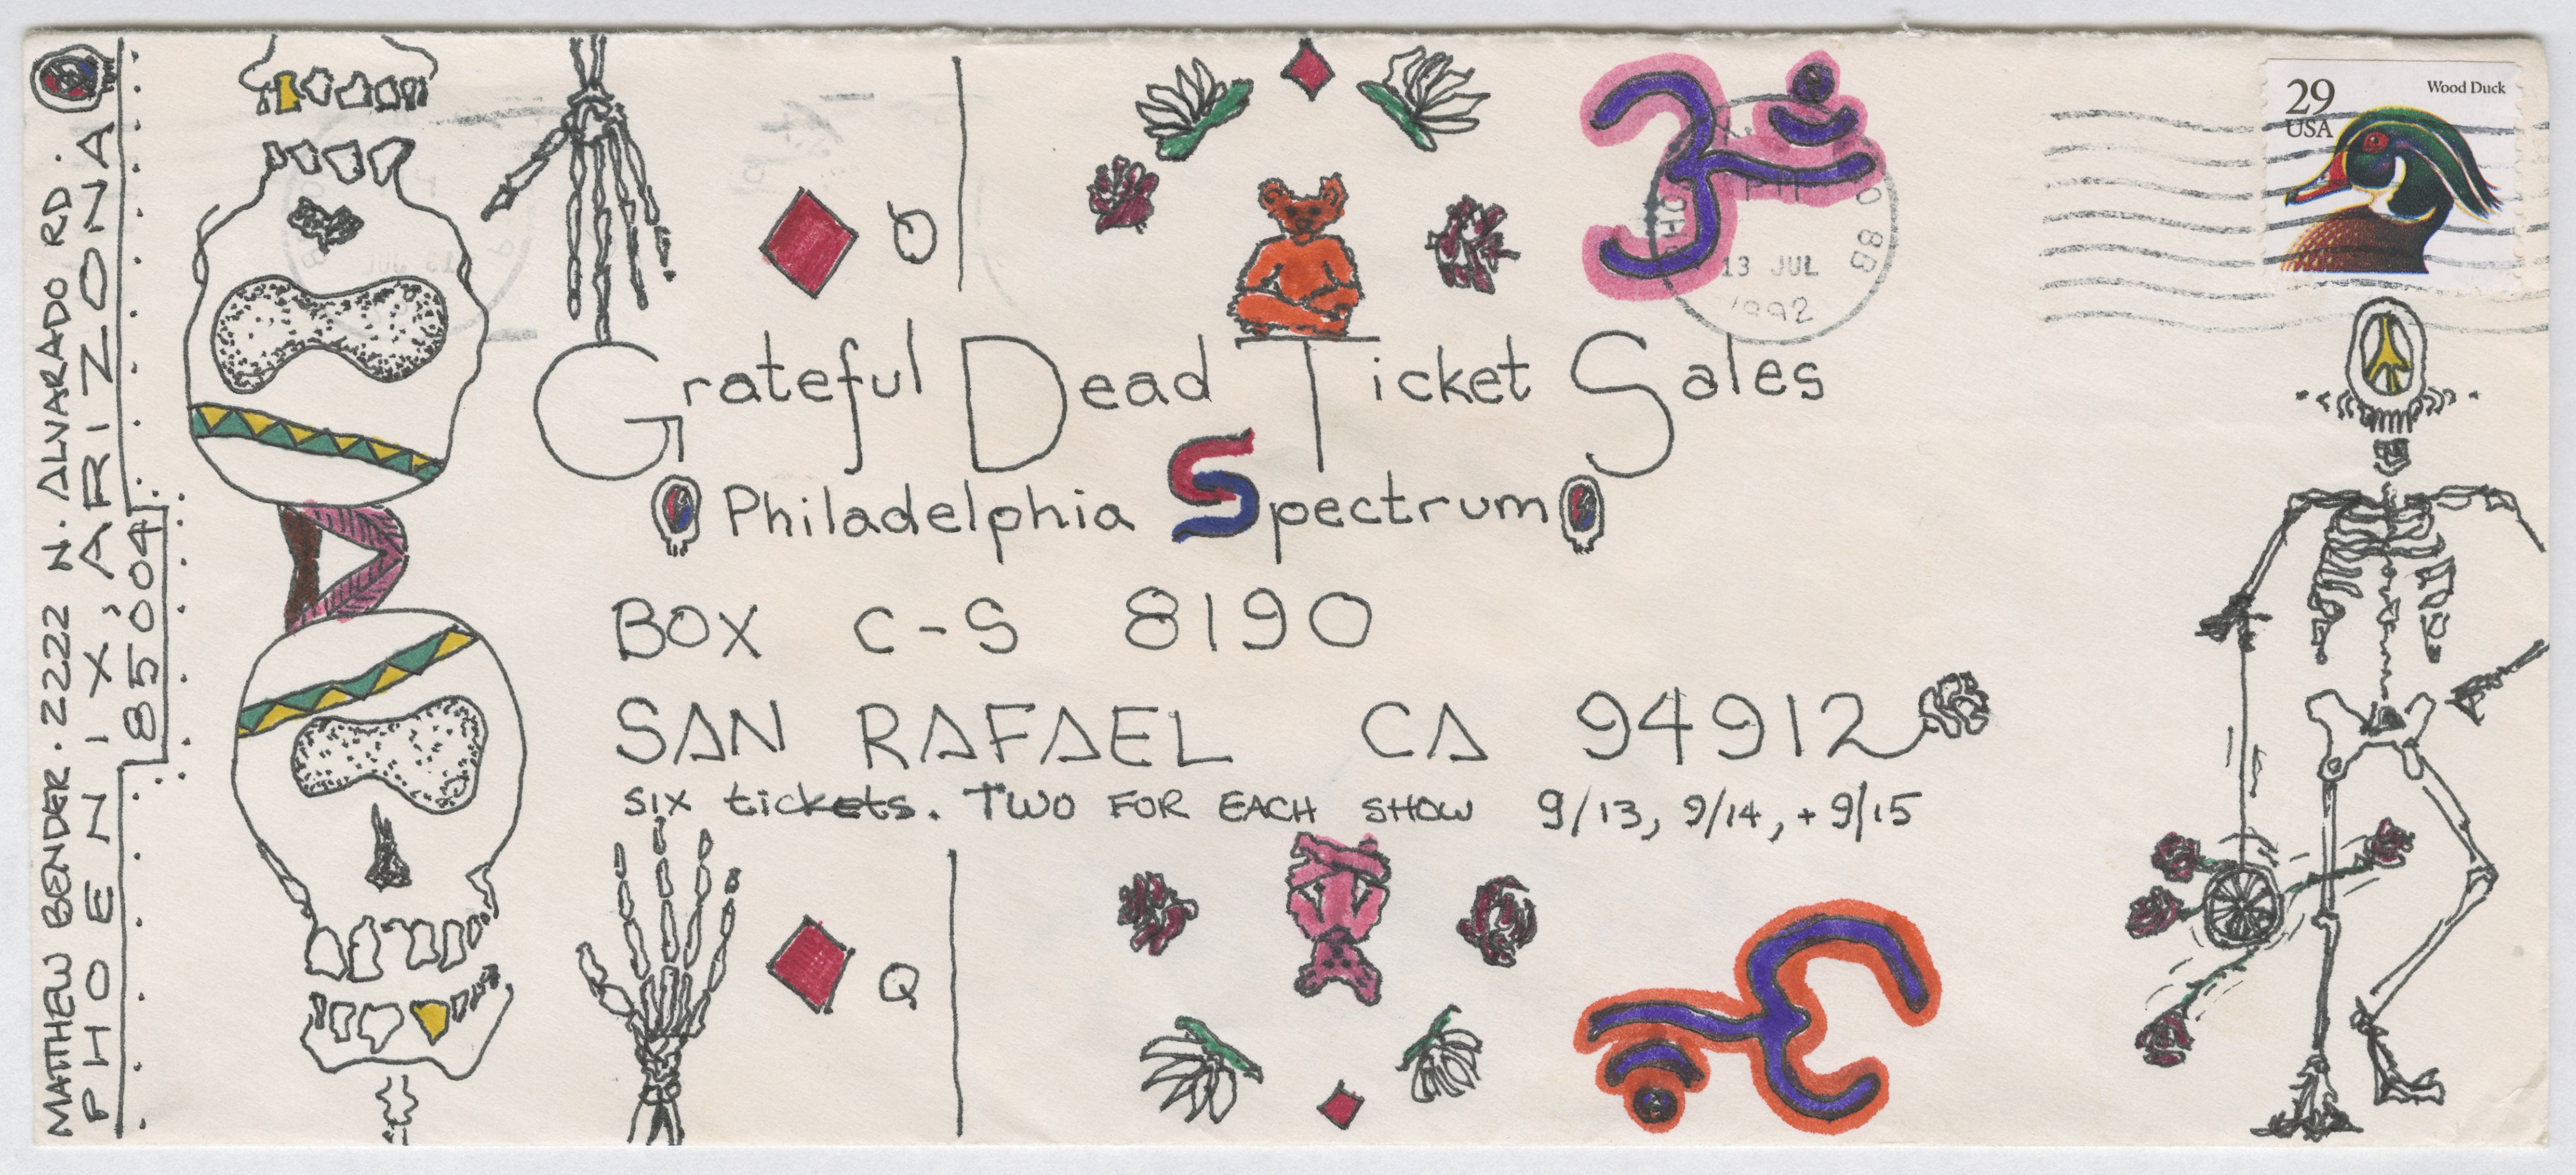 MATTHEW BENDER · 2222 N. ALVARADO RD.
PHOENIX, ARIZONA
85004
Q
Grateful Dead Ticket Sales
Philadelphia Spectrum
BOX C-S 8190
SAN RAFAEL CA 94912
SIX tickets. TWO FOR EACH SHOW 9/13, 9/14, + 9/15
Q
ॐ
13 JUL
1992
29
USA
Wood Duck
ॐ